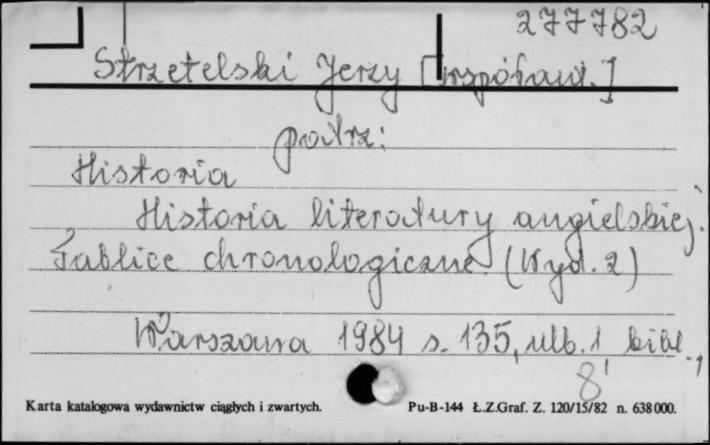 277782
Strzetelski Jerzy [współaut.]
patrz:
Historia
Historia literatury angielskiej.
Tablice chronologiczne (Wyd. 2)
Warszawa 1984 s. 135, nlb. 1 bibl.,
8'
Karta katalogowa wydawnictw ciągłych i zwartych. Pu-B-144 Ł.Z.Graf. Z. 120/15/82 n. 638000.